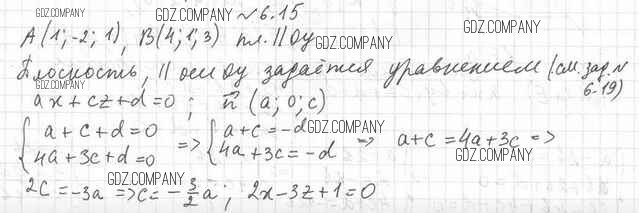 GDZ.COMPANY GDZ.COMPANY № 6.15
A(1; -2; 1), B(4; 1; 3) пл. || Oy GDZ.COMPANY
GDZ.COMPANY
Плоскость, || оси Oy задаётся уравнением (см. зад. №
6.19)
GDZ.COMPANY
ax + cz + d = 0 ; n⃗ (a; 0; c)
{ a + c + d = 0 => { a + c = -d GDZ.COMPANY => a + c = 4a + 3c =>
{ 4a + 3c + d = 0 { 4a + 3c = -d GDZ.COMPANY
GDZ.COMPANY
2c = -3a => c = -3/2 a ; 2x - 3z + 1 = 0
GDZ.COMPANY